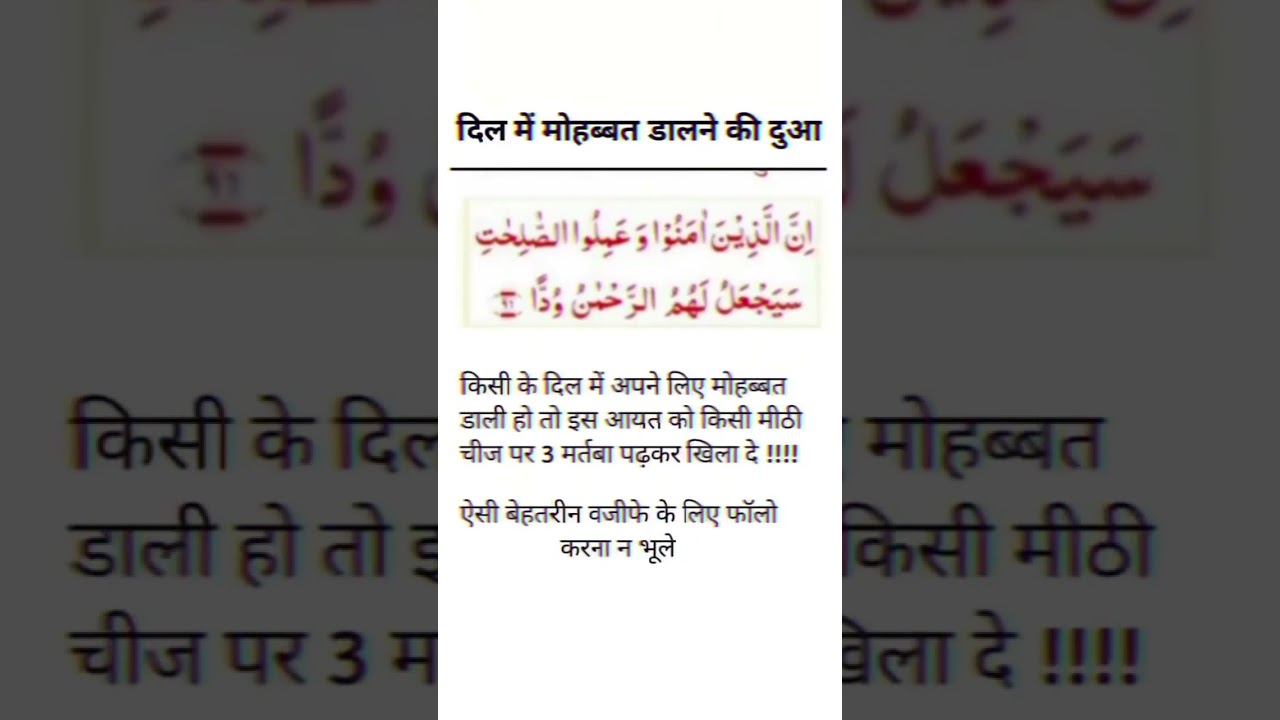 दिल में मोहब्बत डालने की दुआ
اِنَّ الَّذِيْنَ اٰمَنُوْا وَ عَمِلُوا الصّٰلِحٰتِ
سَيَجْعَلُ لَهُمُ الرَّحْمٰنُ وُدًّا ۹۶
किसी के दिल में अपने लिए मोहब्बत
डाली हो तो इस आयत को किसी मीठी
चीज पर 3 मर्तबा पढ़कर खिला दे !!!!
ऐसी बेहतरीन वजीफे के लिए फॉलो
करना न भूले